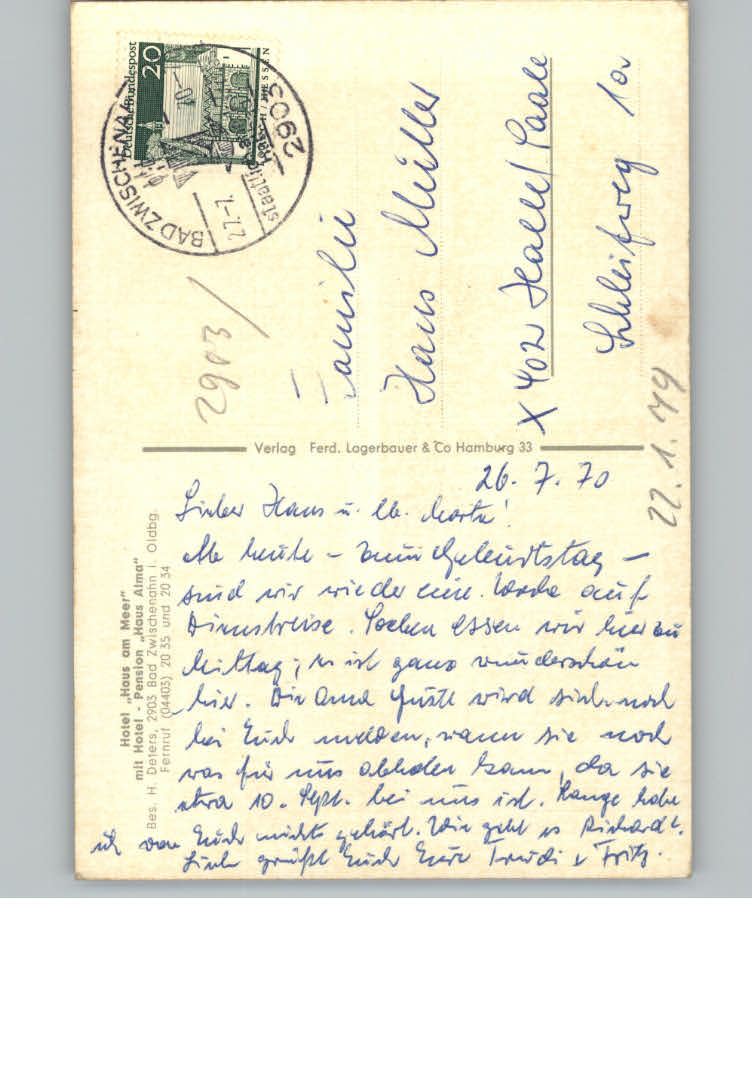 Deutsche Bundespost
20
HESSEN
BAD ZWISCHENAHN
2903
27.-7.
10-
staatl.
2903/
Familie
Hans Müller
X 402 Halle/Saale
Schleifweg 10a
22.1.79
Verlag Ferd. Lagerbauer & Co Hamburg 33
Hotel „Haus am Meer"
mit Hotel - Pension „Haus Alma"
Bes. H. Deters, 2903 Bad Zwischenahn i. Oldbg.
Fernruf (04403) 20 35 und 20 34
26.7.70
Lieber Hans u. lb. Marta!
Ab heute – zum Geburtstag –
sind wir wieder eine Woche auf
Dienstreise. Soeben essen wir hier zu
Mittag; es ist ganz wunderschön
hier. Die Oma Guste wird sich noch
bei Euch melden, wann sie noch
was für uns abholen kann, da sie
etwa 10. Sept. bei uns ist. Lange habe
ich von Euch nichts gehört. Wie geht es Richard?
Lieb grüßt Euch Eure Trudi & Fritz.